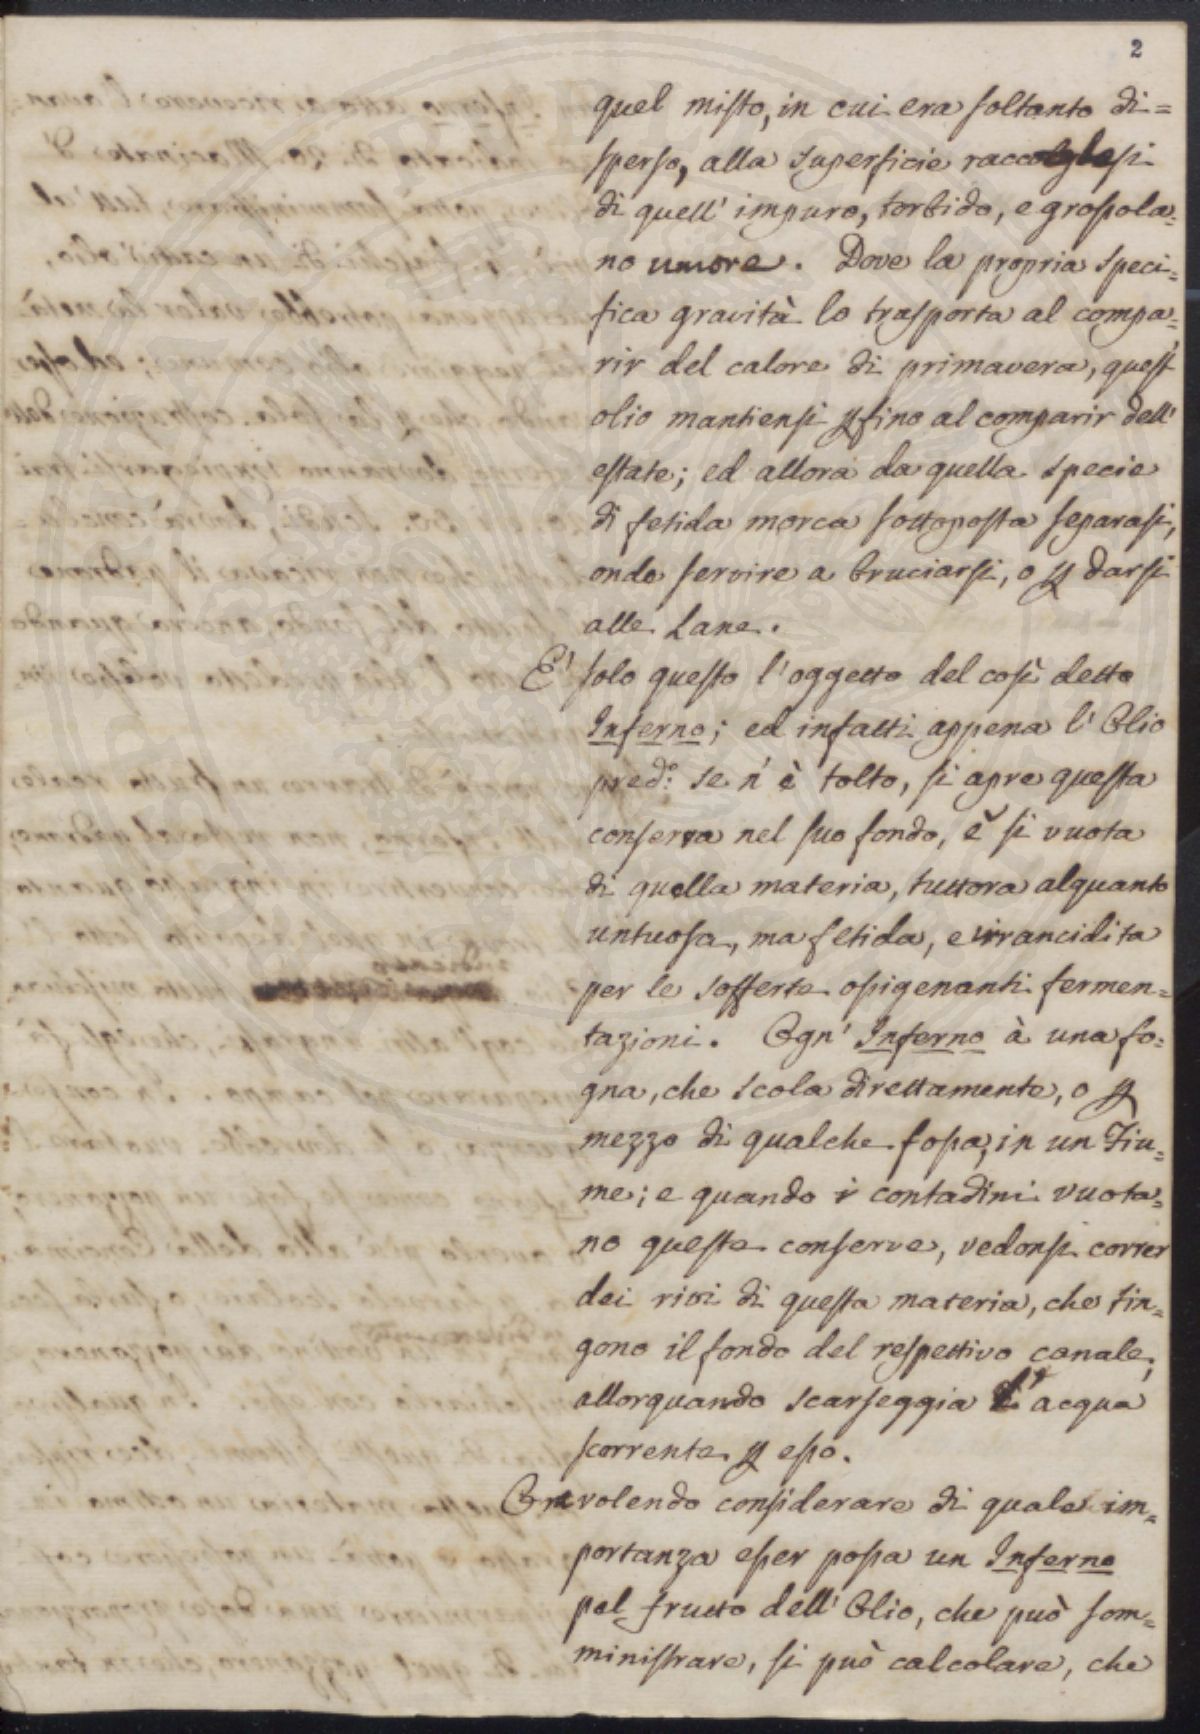 2
quel misto, in cui era soltanto di=
sperso, alla superficie raccoglesi
di quell' impuro, torbido, e grossola=
no umore. Dove la propria speci=
fica gravità lo trasporta al compa=
rir del calore di primavera, quest'
olio mantiensi p fino al comparir dell'
estate; ed allora da quella specie
di fetida morca sottoposta separasi,
onde servire a bruciarsi, o p darsi
alle Lane.
E' solo questo l'oggetto del così detto
Inferno; ed infatti appena l'Olio
pred.o se n'è tolto, si apre questa
conserva nel suo fondo, e si vuota
di quella materia, tuttora alquanto
untuosa, ma fetida, e irrancidita
per le sofferte ossigenanti fermen=
tazioni. Ogn' Inferno à una fo=
gna, che scola direttamente, o p
mezzo di qualche fossa, in un Fiu=
me; e quando i contadini vuota=
no queste conserve, vedonsi correr
dei rivi di questa materia, che tin=
gono il fondo del respettivo canale,
allorquando scarseggia l'acqua
scorrente p esso.
Or volendo considerare di quale im=
portanza esser possa un Inferno
pel frutto dell'Olio, che può som=
ministrare, si può calcolare, che